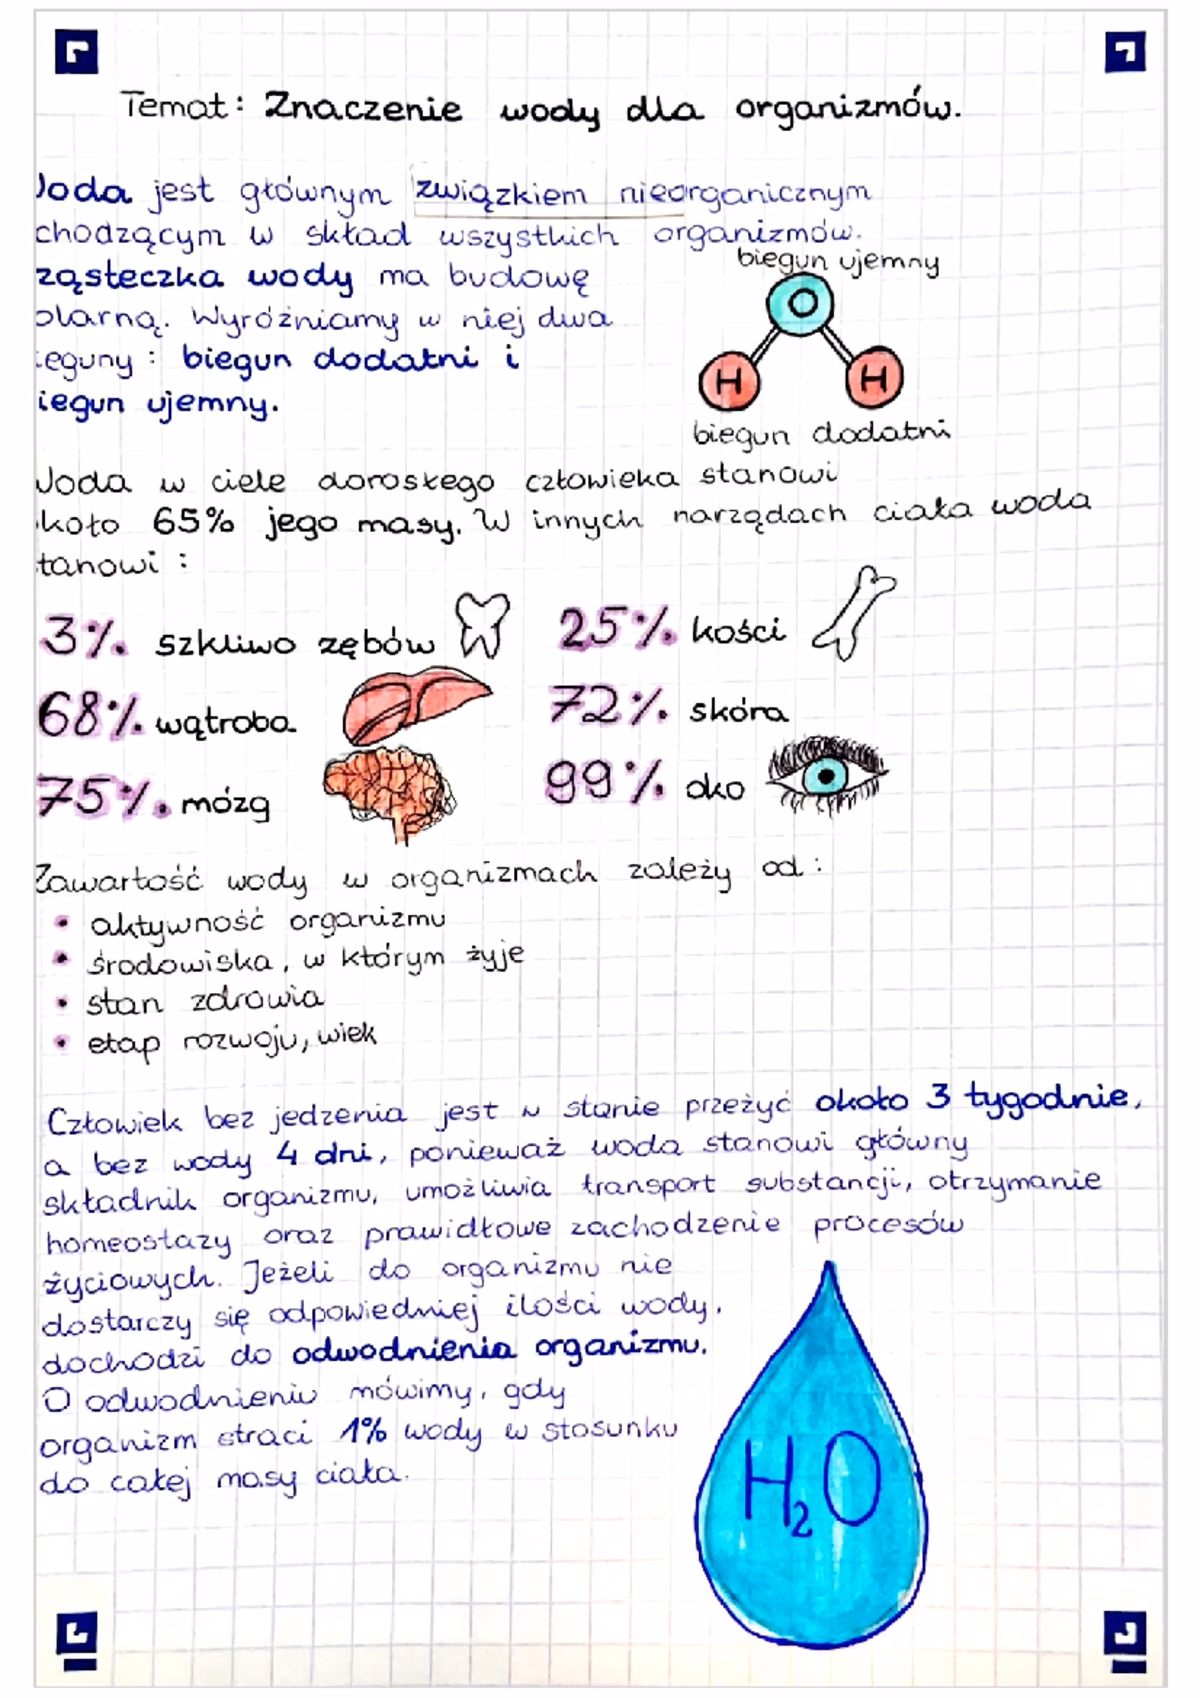 Temat: Znaczenie wody dla organizmów.
oda jest głównym związkiem nieorganicznym
chodzącym w skład wszystkich organizmów.
biegun ujemny
ząsteczka wody ma budowę
olarną. Wyróżniamy w niej dwa
O
ieguny: biegun dodatni i
H H
iegun ujemny.
biegun dodatni
Woda w ciele dorosłego człowieka stanowi
koło 65% jego masy. W innych narządach ciała woda
tanowi:
3% szkliwo zębów 25% kości
68% wątroba 72% skóra
75% mózg 99% oko
Zawartość wody w organizmach zależy od:
• aktywność organizmu
• środowiska, w którym żyje
• stan zdrowia
• etap rozwoju, wiek
Człowiek bez jedzenia jest w stanie przeżyć około 3 tygodnie,
a bez wody 4 dni, ponieważ woda stanowi główny
składnik organizmu, umożliwia transport substancji, otrzymanie
homeostazy oraz prawidłowe zachodzenie procesów
życiowych. Jeżeli do organizmu nie
dostarczy się odpowiedniej ilości wody,
dochodzi do odwodnienia organizmu.
O odwodnieniu mówimy, gdy
organizm straci 1% wody w stosunku
do całej masy ciała.
H₂O